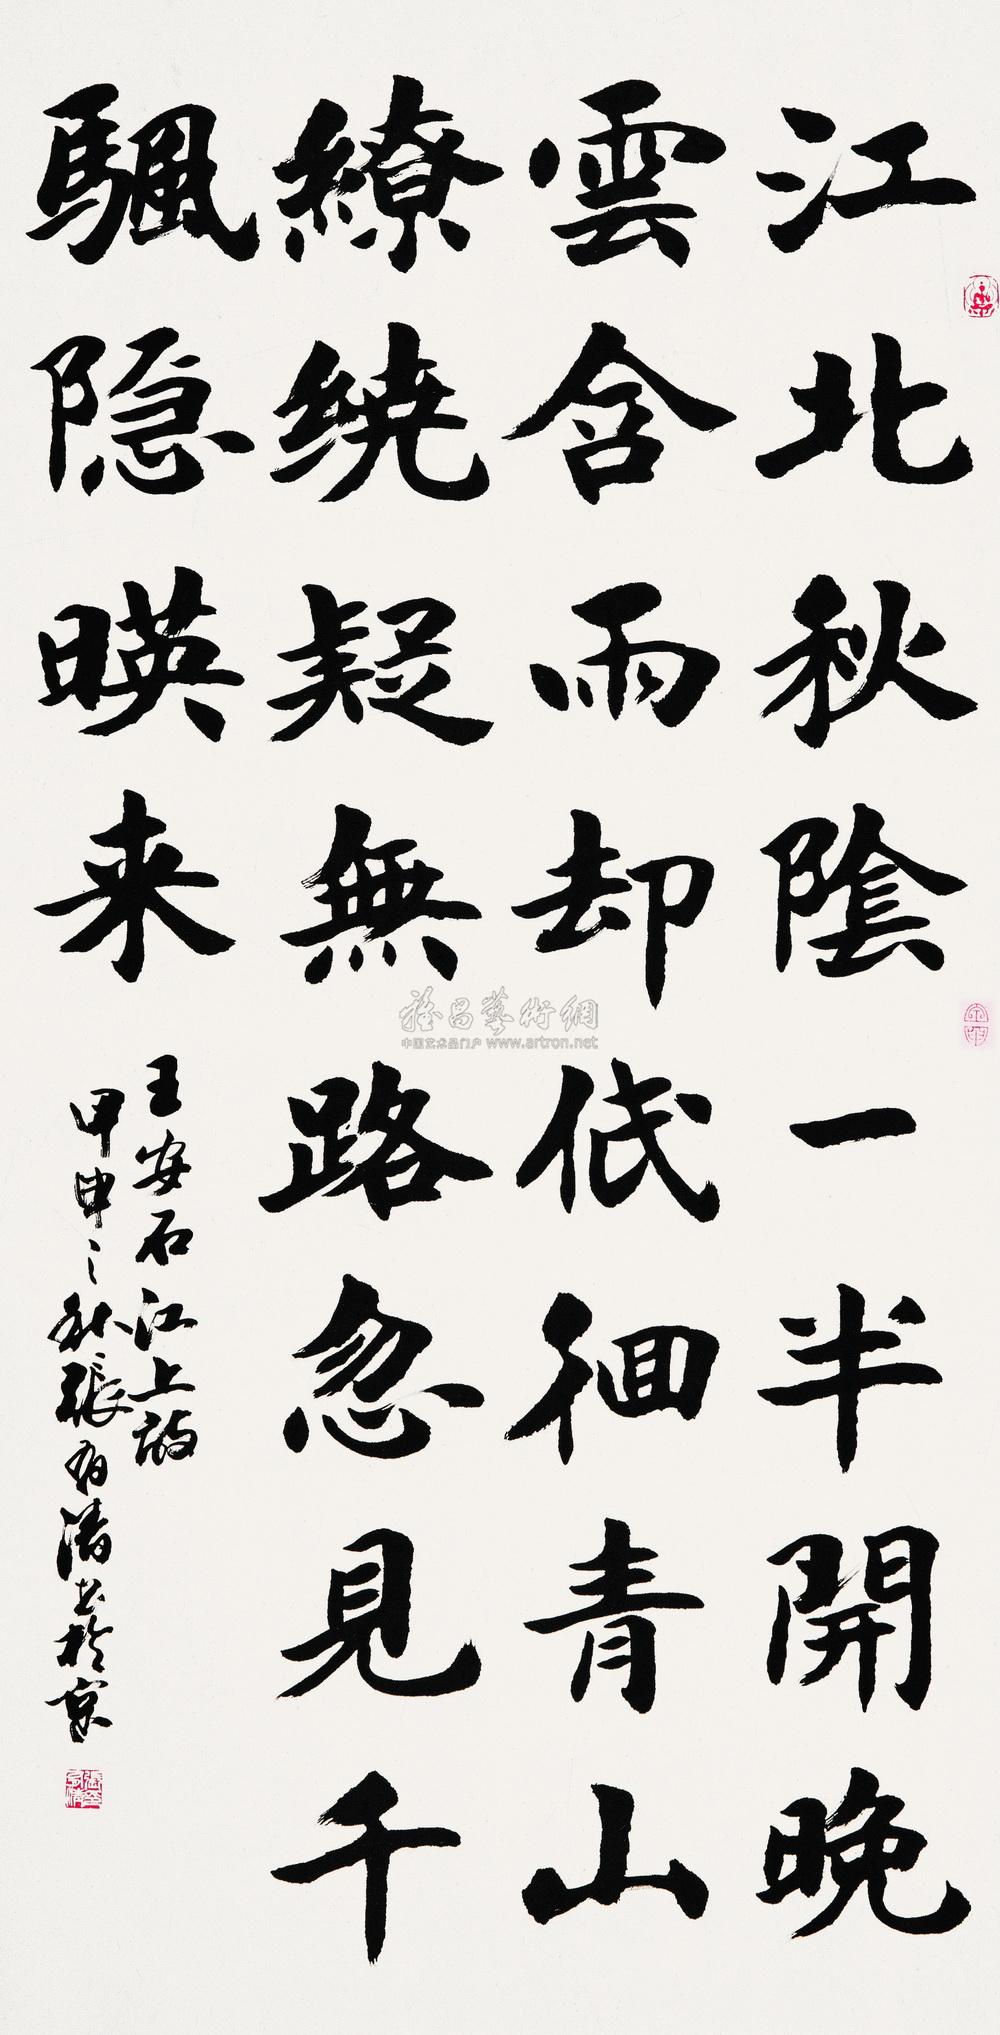 江北秋陰一半開晚
雲含雨却低徊青山
繚繞疑無路忽見千
颿隐暎来
王安石江上詩
甲申之秋張有清书於京
雅昌藝術網
中国艺术品门户 www.artron.net